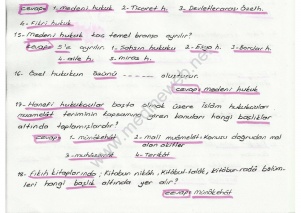 cevap 1. medeni hukuk 2- Ticaret h. 3- Devletlerarası özel h.
4- Fikri hukuk
15- Medeni hukuk kaç temel branşa ayrılır?
cevap 5'e ayrılır. 1. Şahsın hukuku 2- Eşya h. 3- Borçlar h.
4- aile h. 5- miras h.
16. Özel hukukun özünü ------ oluşturur.
cevap medeni hukuk
17- Hanefi hukukçular başta olmak üzere İslâm hukukçuları
muamelât teriminin kapsamına giren konuları hangi başlıklar
altında toplamışlardır?
cevap 1- münâkehât 2- mali muamelât- Konusu doğrudan mal
olan akitler
3- muhâsamât 4- Terikât
18- fıkıh kitaplarında; Kitabun nikâh, Kitâbut-talâk, Kitâbur-radâ bölüm-
leri hangi başlık altında yer alır?
cevap münâkehât